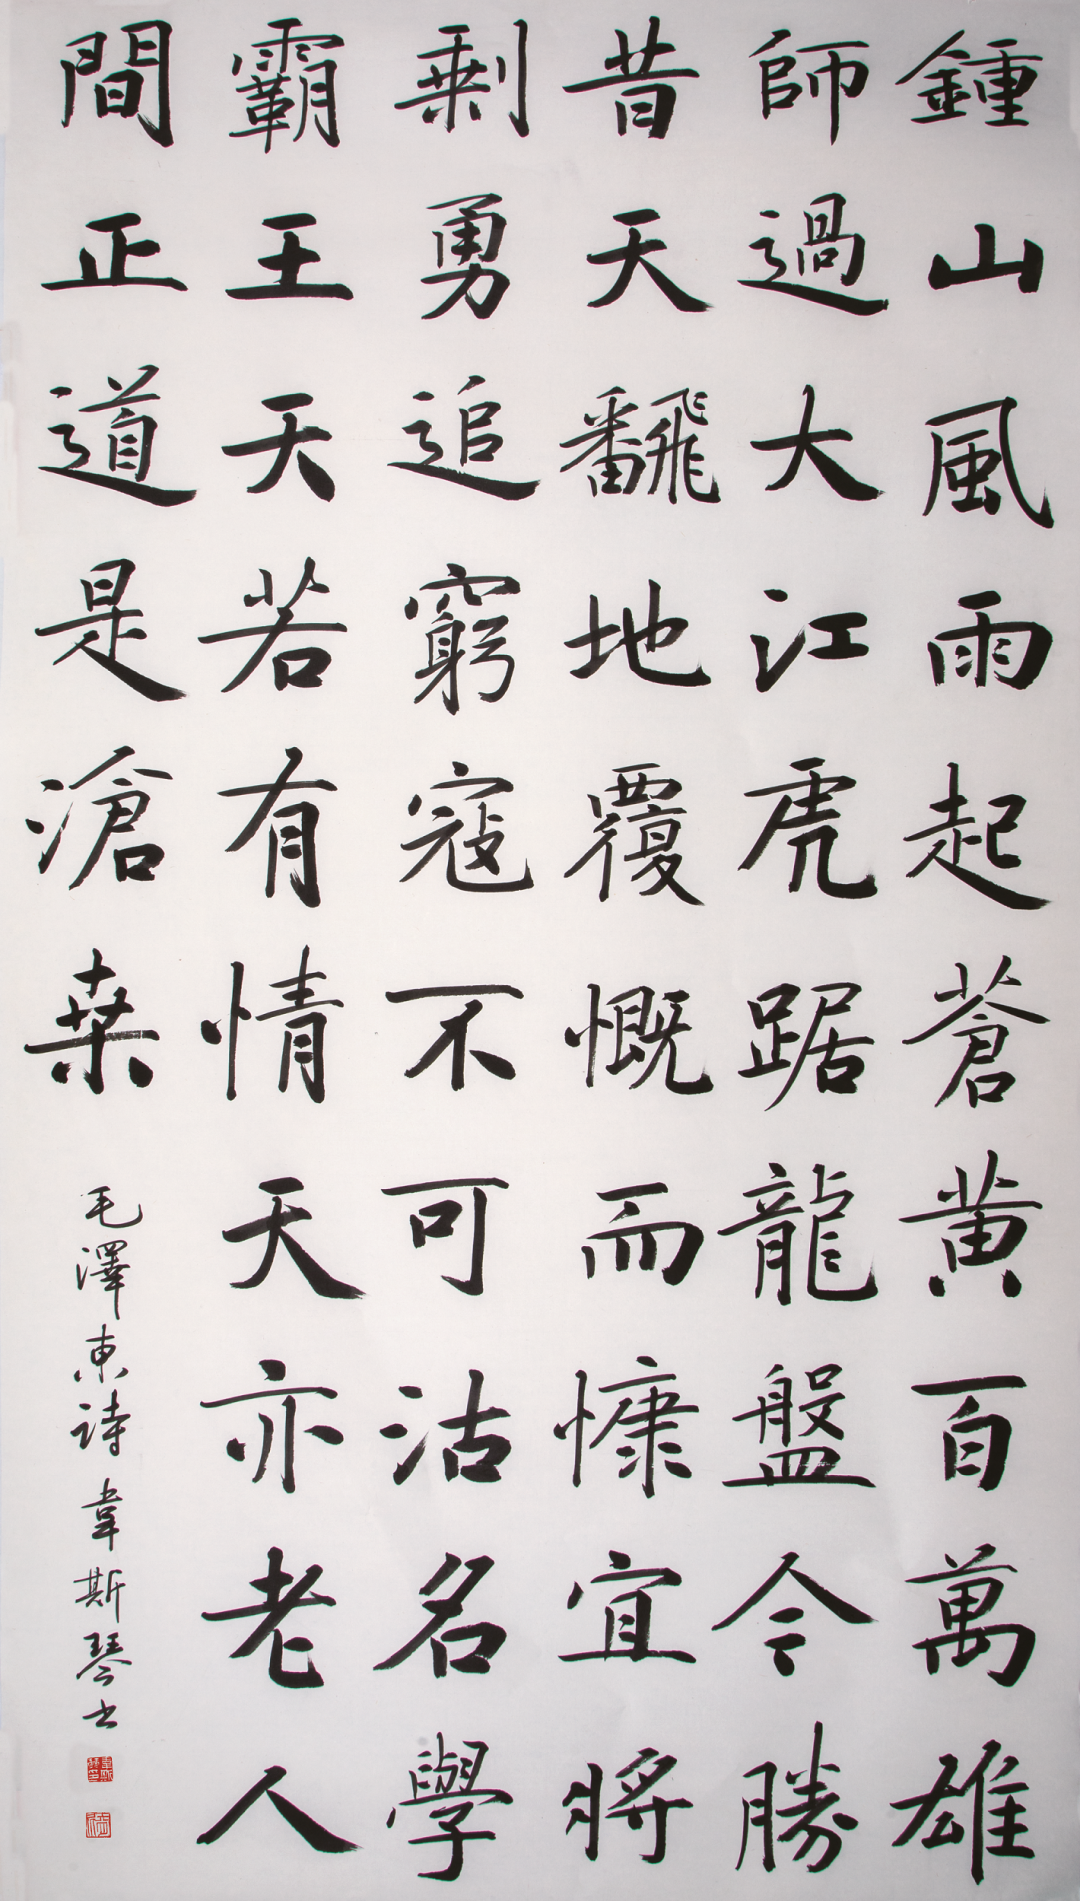 鍾山風雨起蒼黄百萬雄
師過大江虎踞龍盤今勝
昔天飜地覆慨而慷宜將
剩勇追窮寇不可沽名學
霸王天若有情天亦老人
間正道是滄桒
毛澤東詩 韋斯琴书